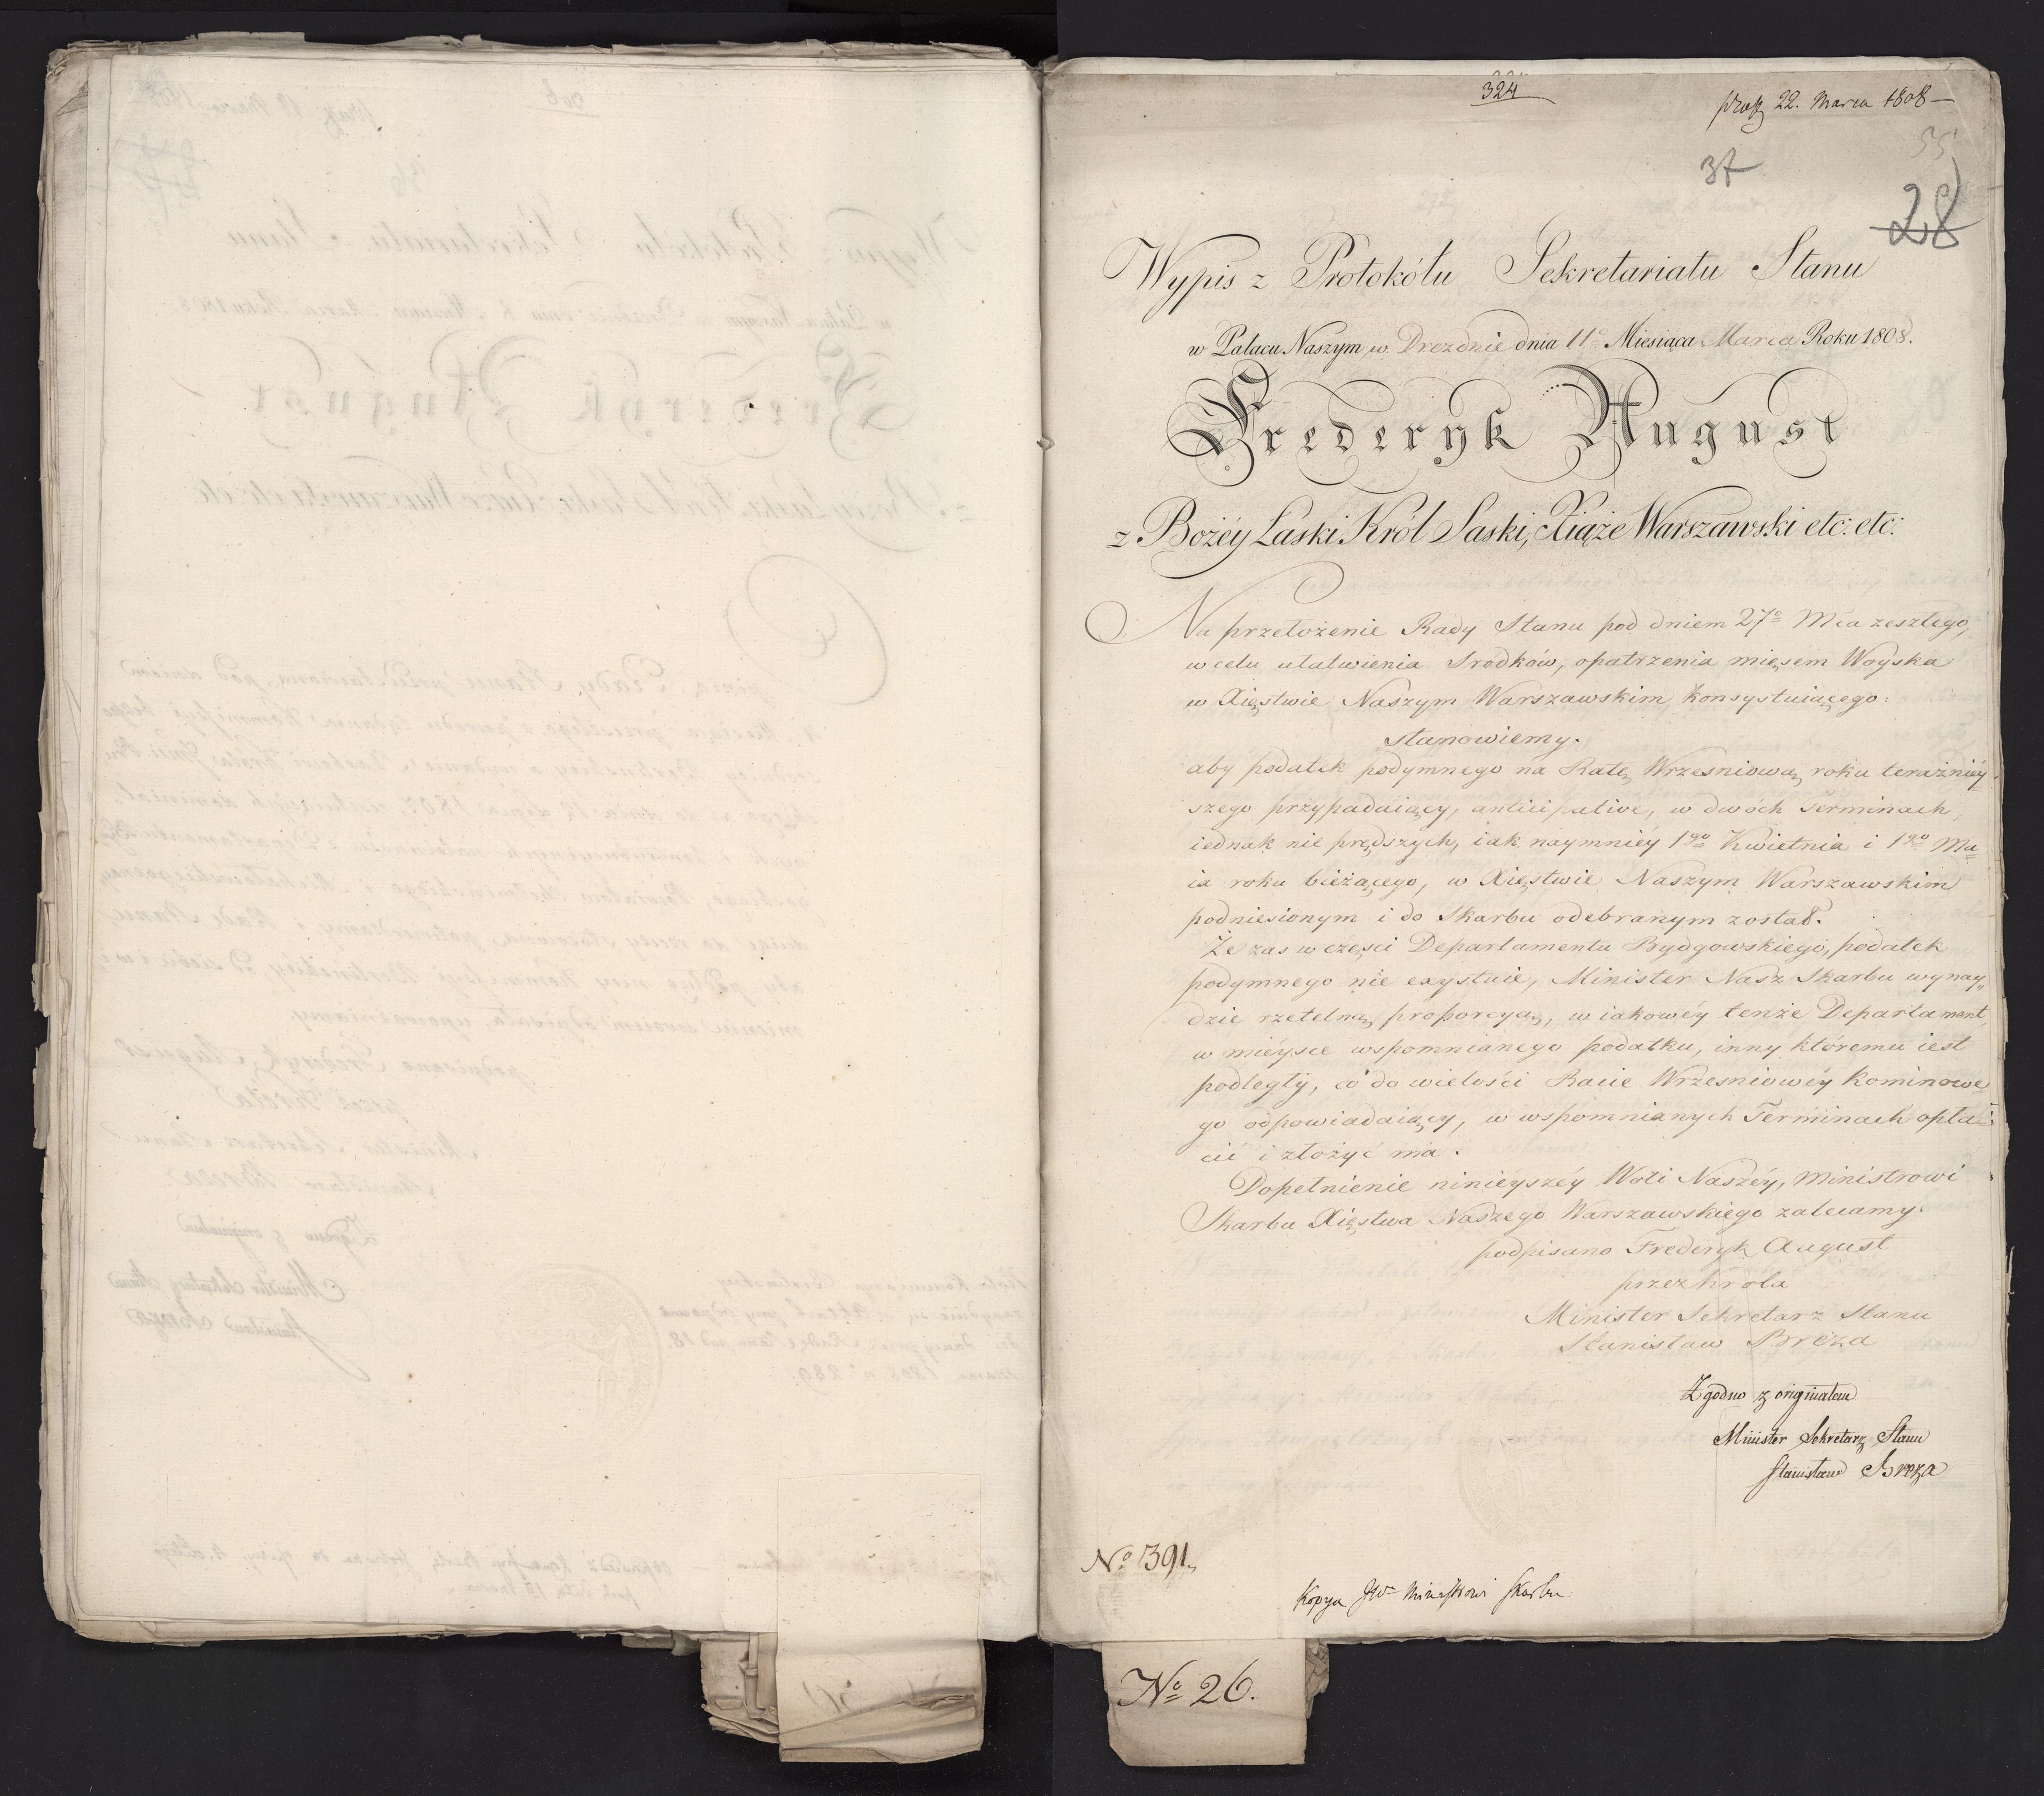 324
praes 22. Marca 1808 —
55
37
28
Wypis z Protokółu Sekretariatu Stanu
w Pałacu Naszym w Dreznie dnia 11o Miesiąca Marca Roku 1808.
Frederyk August
z Bożéy Łaski Król Saski, Xiąże Warszawski etc: etc:
Na przełożenie Rady Stanu pod dniem 27o Mca zeszłego,
w celu ułatwienia Srodków, opatrzenia mięsem Woyska
w Xięstwie Naszym Warszawskim Konsystuiącego:
stanowiemy.
aby podatek podymnego na Ratę Wrzesniową roku teraźniéy=
szego przypadaiący, anticipative, w dwóch Terminach,
iednak nie prędszych, iak naymniéy 1go Kwietnia i 1go Ma=
ia roku bieżącego, w Xięstwie Naszym Warszawskim
podniesionym i do Skarbu odebranym został.
Że zas w częsci Departamentu Bydgowskiego, podatek
podymnego nie exystuie, Minister Nasz Skarbu wynay„
dzie rzetelną proporcyą, w iakowéy tenże Departament,
w mieysce wspomnianego podatku, inny któremu iest
podległy, co do wielości Racie Wrzesniowéy Kominowe=
go odpowiadaiący, w wspomnianych Terminach opła=
cić i złożyć ma.
Dopełnienie ninieyszéy Woli Naszéy, Ministrowi
Skarbu Xięstwa Naszego Warszawskiego zalecamy.
podpisano Frederyk August
przez Króla
Minister Sekretarz Stanu
Stanisław Breza
Zgodno z originałem
Minister Sekretarz Stanu
Stanisław Breza
No 391.
Kopya JWo Ministrowi Skarbu
No 26.